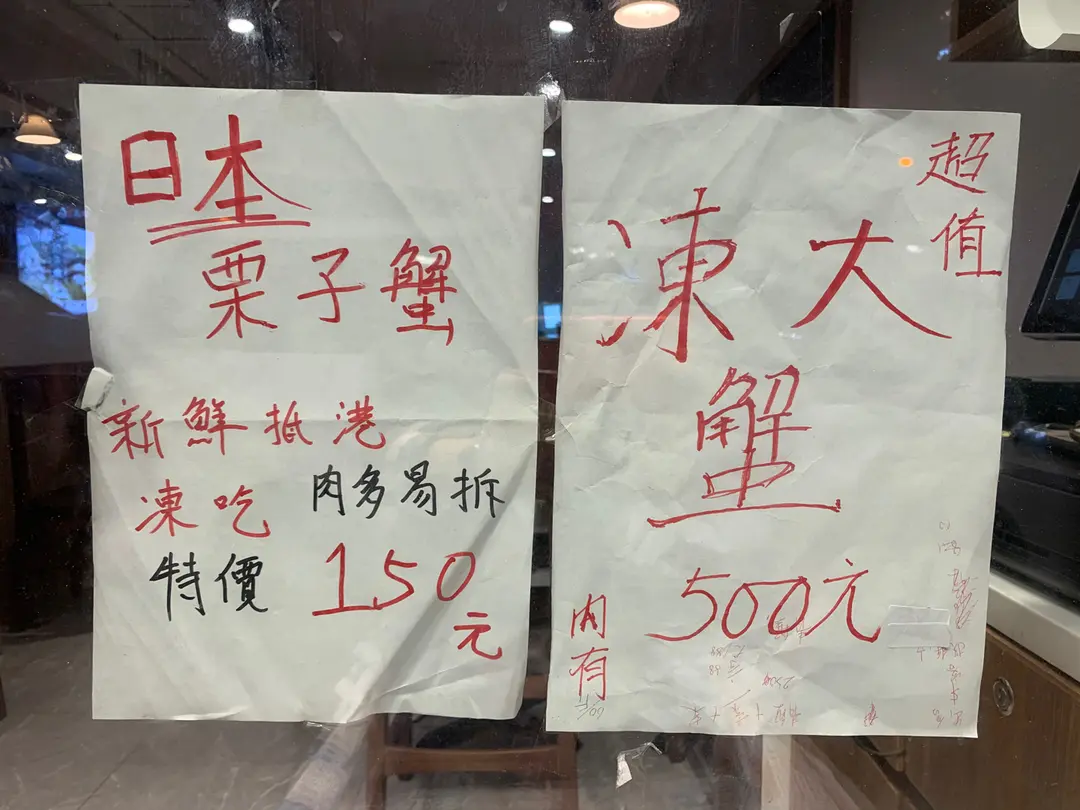 日本
栗子蟹
新鮮抵港
凍吃 肉多易拆
特價 150
元
超值
凍大
蟹
500元
內有